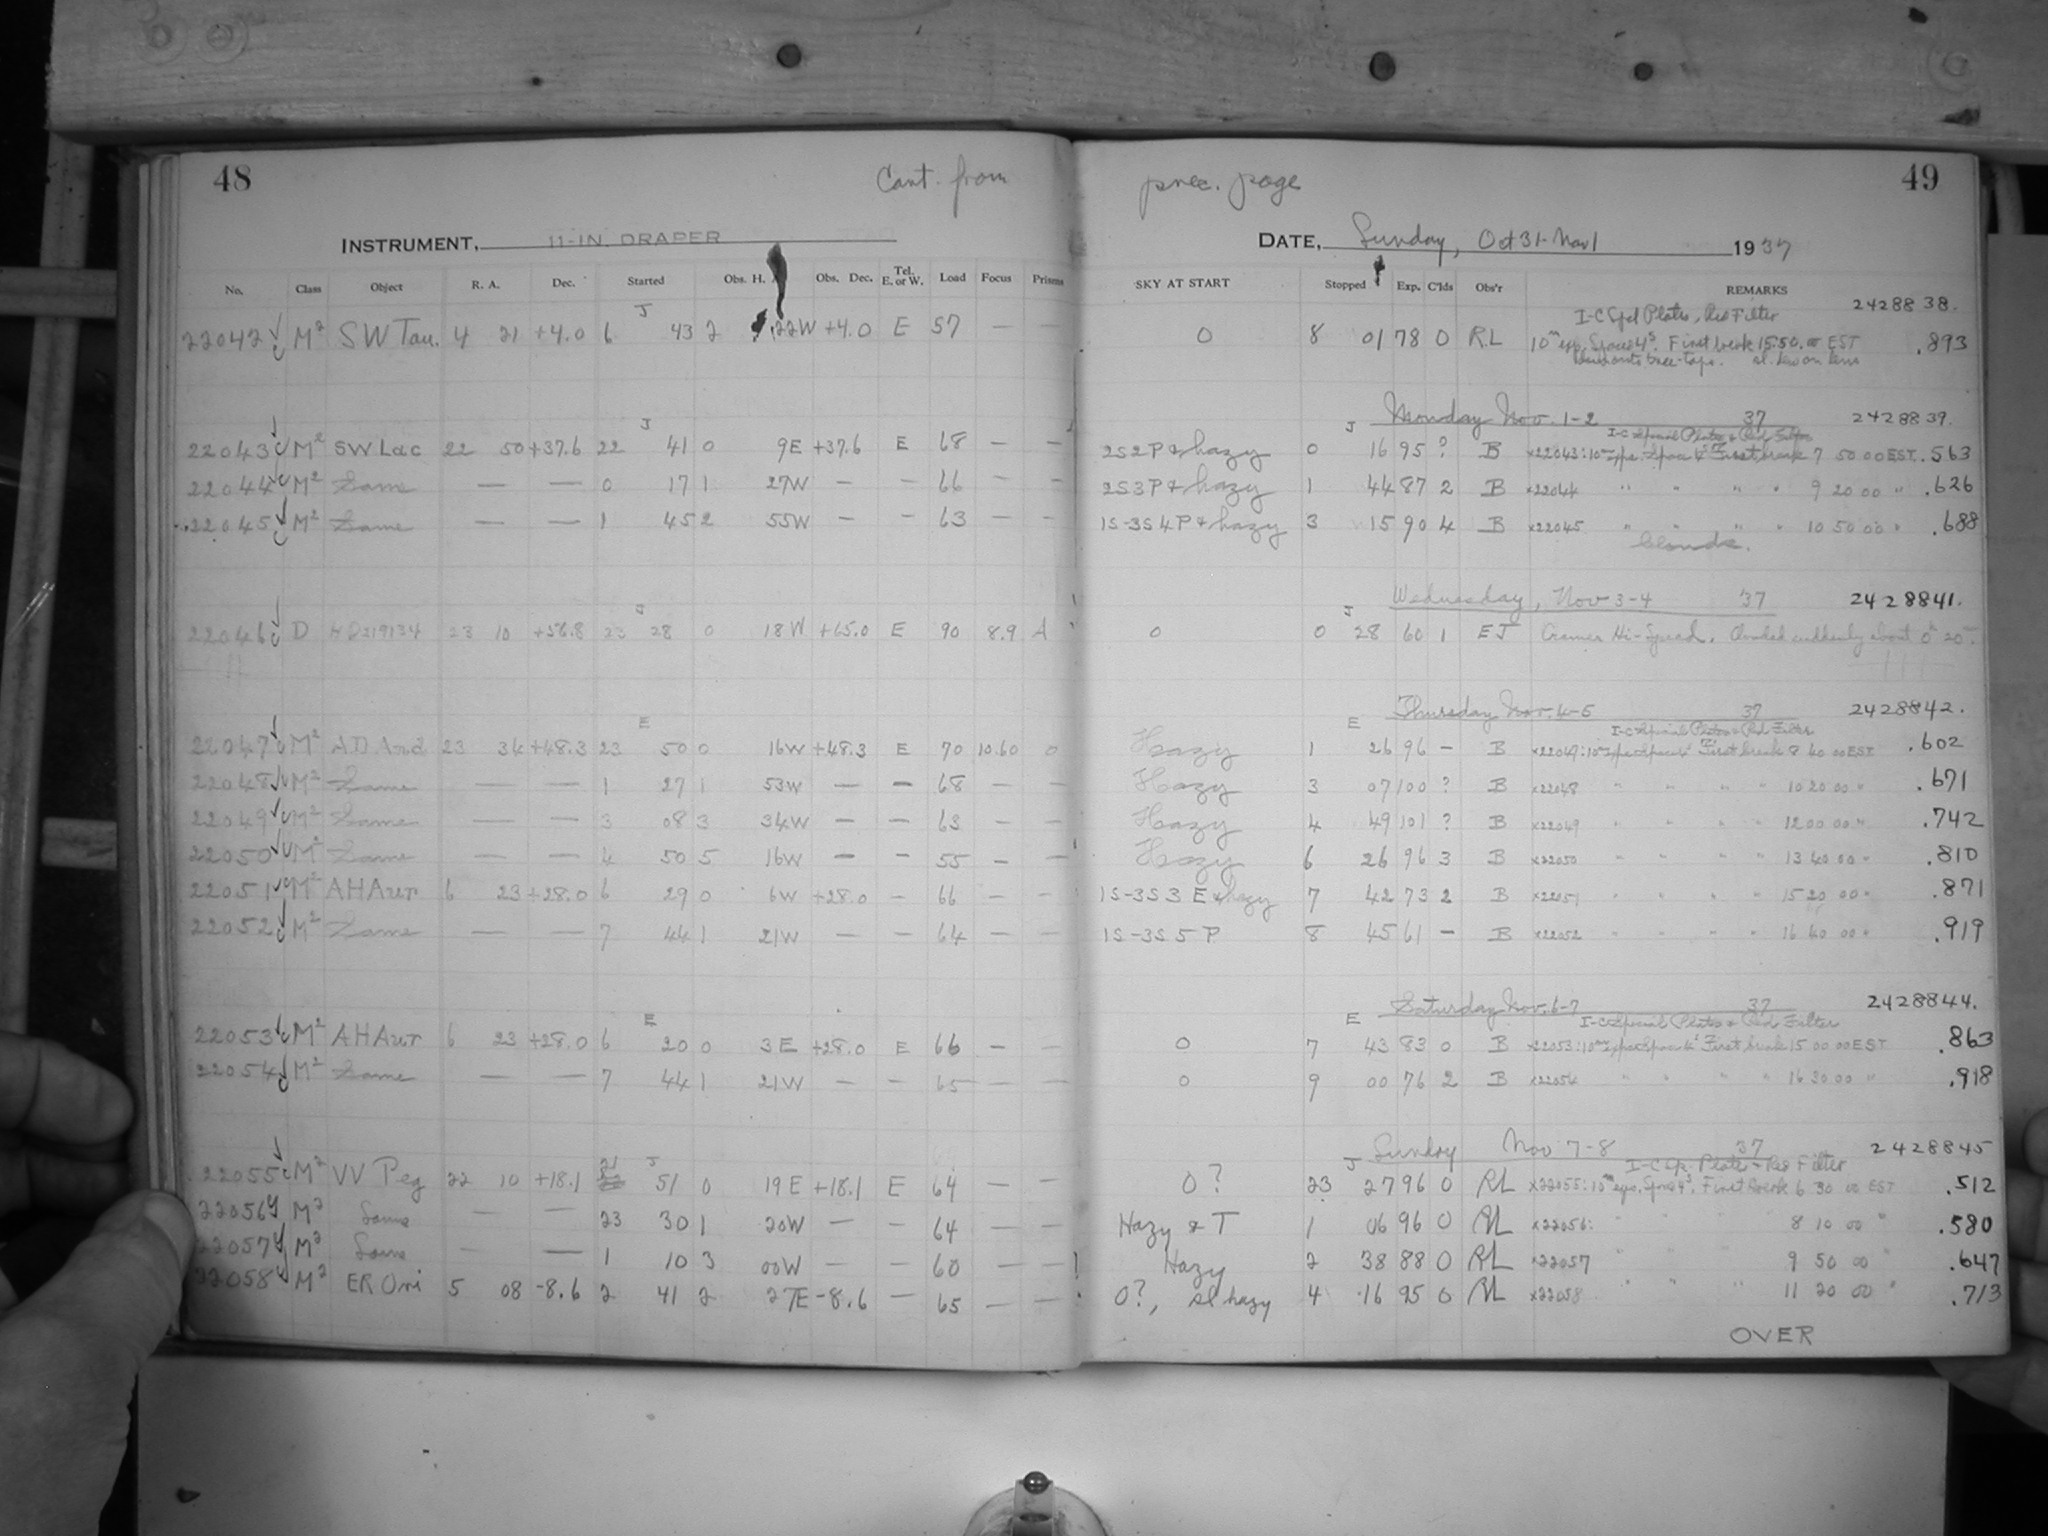 48 Cont. from prec. page 49
INSTRUMENT, 11-IN. DRAPER DATE, Sunday, Oct 31-Nov 1 1937
No. Class Object R. A. Dec. Started Obs. H. Obs. Dec. Tel. E. or W. Load Focus Prisms SKY AT START Stopped Exp. C'lds Obs'r REMARKS
J 2428838.
I-C Spcl Plates, Red Filter
22042 M² SW Tau. 4 21 +4.0 6 43 2 22W +4.0 E 57 — — 0 8 01 78 0 R.L 10ᵐ exp. Space 4ˢ. First break 15 50 00 EST .893
tree-tops. sl. dew on lens
Monday Nov. 1-2 37 2428839.
J J I-C Special Plates & Red Filter
22043 M² SW Lac 22 50 +37.6 22 41 0 9E +37.6 E 68 — — 2S2P & hazy 0 16 95 ? B x22043: 10ᵐ exp. Space 4ˢ First break 7 50 00 EST .563
22044 M² Same — — 0 17 1 27W — — 66 — — 2S3P & hazy 1 44 87 2 B x22044 " " " " 9 20 00 " .626
22045 M² Same — — 1 45 2 55W — — 63 — — 1S-3S4P & hazy 3 15 90 4 B x22045 " " " " 10 50 00 " .688
clouds.
Wednesday, Nov 3-4 37 2428841.
J J
22046 D HD219134 23 10 +56.8 23 28 0 18W +65.0 E 90 8.9 A 0 0 28 60 1 EJ Cramer Hi-Speed. Clouded suddenly about 0ʰ 20ᵐ.
Thursday Nov. 4-5 37 2428842.
E E I-C Special Plates & Red Filter
22047 M² AD And 23 34 +48.3 23 50 0 16W +48.3 E 70 10.60 0 Hazy 1 26 96 — B x22047: 10ᵐ exps Space 4ˢ First break 8 40 00 EST .602
22048 M² Same — — 1 27 1 53W — — 68 — — Hazy 3 07 100 ? B x22048 " " " " 10 20 00 " .671
22049 M² Same — — 3 08 3 34W — — 63 — — Hazy 4 49 101 ? B x22049 " " " " 12 00 00 " .742
22050 M² Same — — 4 50 5 16W — — 55 — — Hazy 6 26 96 3 B x22050 " " " " 13 40 00 " .810
22051 M² AH Aur 6 23 +28.0 6 29 0 6W +28.0 — 66 — — 1S-3S 3 E & hazy 7 42 73 2 B x22051 " " " " 15 20 00 " .871
22052 M² Same — — 7 44 1 21W — — 64 — — 1S-3S 5 P 8 45 61 — B x22052 " " " " 16 40 00 " .919
Saturday Nov. 6-7 37 2428844.
E E I-C Special Plates & Red Filter
22053 M² AH Aur 6 23 +28.0 6 20 0 3E +28.0 E 66 — — 0 7 43 83 0 B x22053: 10ᵐ exps Space 4ˢ First break 15 00 00 EST .863
22054 M² Same — — 7 44 1 21W — — 65 — — 0 9 00 76 2 B x22054 " " " " 16 30 00 " .918
Sunday Nov 7-8 37 2428845
21 J J I-C Spc. Plates & Red Filter
22055 M² VV Peg 22 10 +18.1 51 0 19E +18.1 E 64 — — 0? 23 27 96 0 RL x22055: 10ᵐ exp. Space 4ˢ. First break 6 30 00 EST .512
22056 M² Same — — 23 30 1 20W — — 64 — — Hazy & T 1 06 96 0 RL x22056: 8 10 00 " .580
22057 M² Same — — 1 10 3 00W — — 60 — — Hazy 2 38 88 0 RL x22057 " " " 9 50 00 " .647
22058 M² ER Ori 5 08 -8.6 2 41 2 27E -8.6 — 65 — — 0?, sl hazy 4 16 95 0 RL x22058 " " " 11 20 00 " .713
OVER